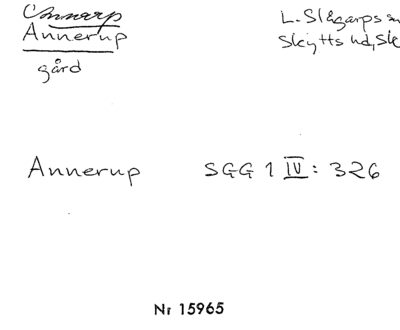 Annarp
Annerup
gård
L. Slågarps
Skytts hd, Sk
Annerup SGG 1 IV: 326
Nr 15965